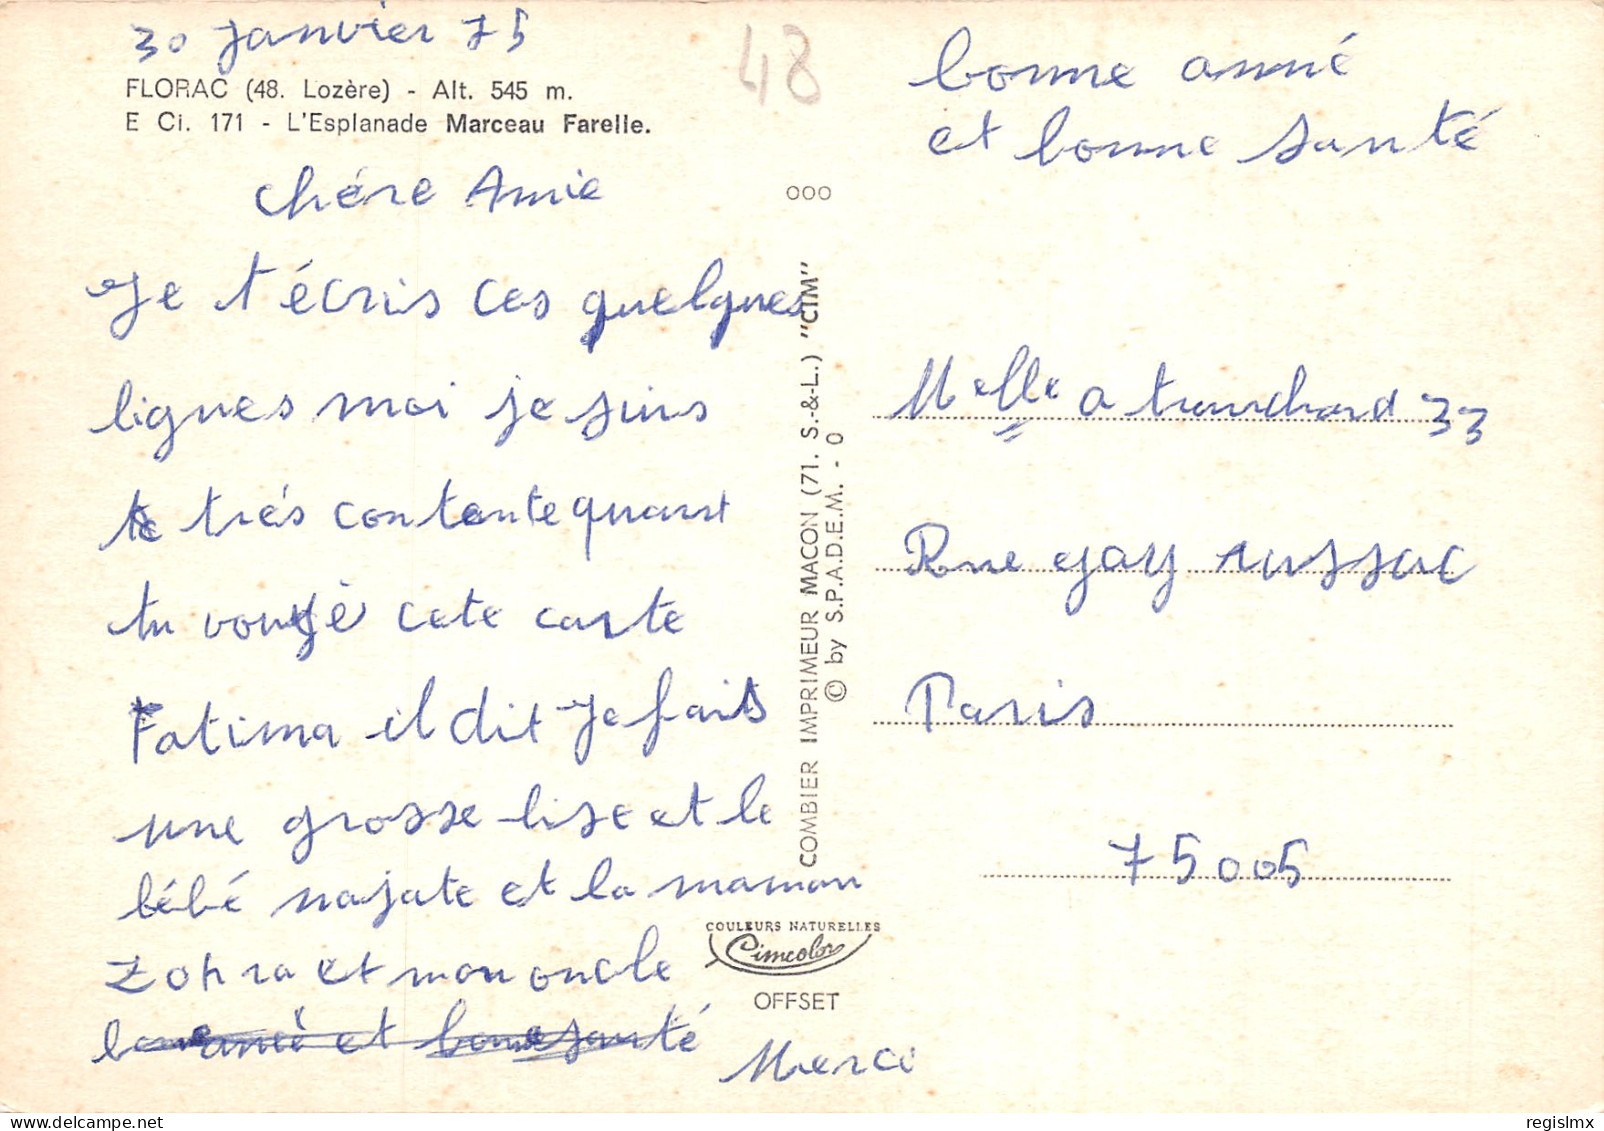 30 janvier 75
48
FLORAC (48. Lozère) - Alt. 545 m.
E Ci. 171 - L'Esplanade Marceau Farelle.
chére Amie
Je t'écris ces quelques
lignes moi je suis
te trés contente quant
tu vouyè cete carte
Fatima il dit je fais
une grosse bise et le
bébé najate et la maman
Zohra et mon oncle
bonne anné et bonne santé
Merci
bonne anné
et bonne santé
000
COMBIER IMPRIMEUR MACON (71. S.-&-L.) "CIM"
© by S.P.A.D.E.M. - 0
Melle a tranchard 33
Rue gay russac
Paris
75005
COULEURS NATURELLES
Cimcolor
OFFSET
regislmx